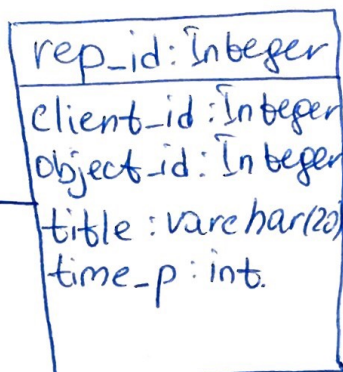 rep_id: Integer
client_id: Integer
object_id: Integer
title: varchar(20)
time_p: int.